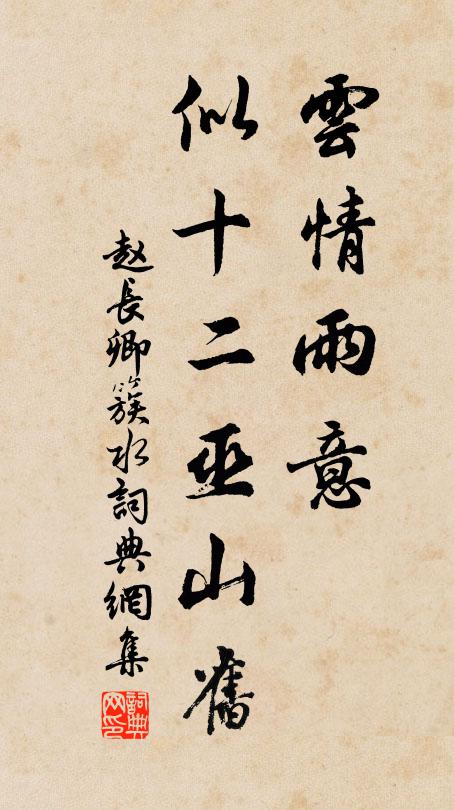 雲情雨意
似十二巫山舊
赵長卿簇水詞典網集
詞典网印